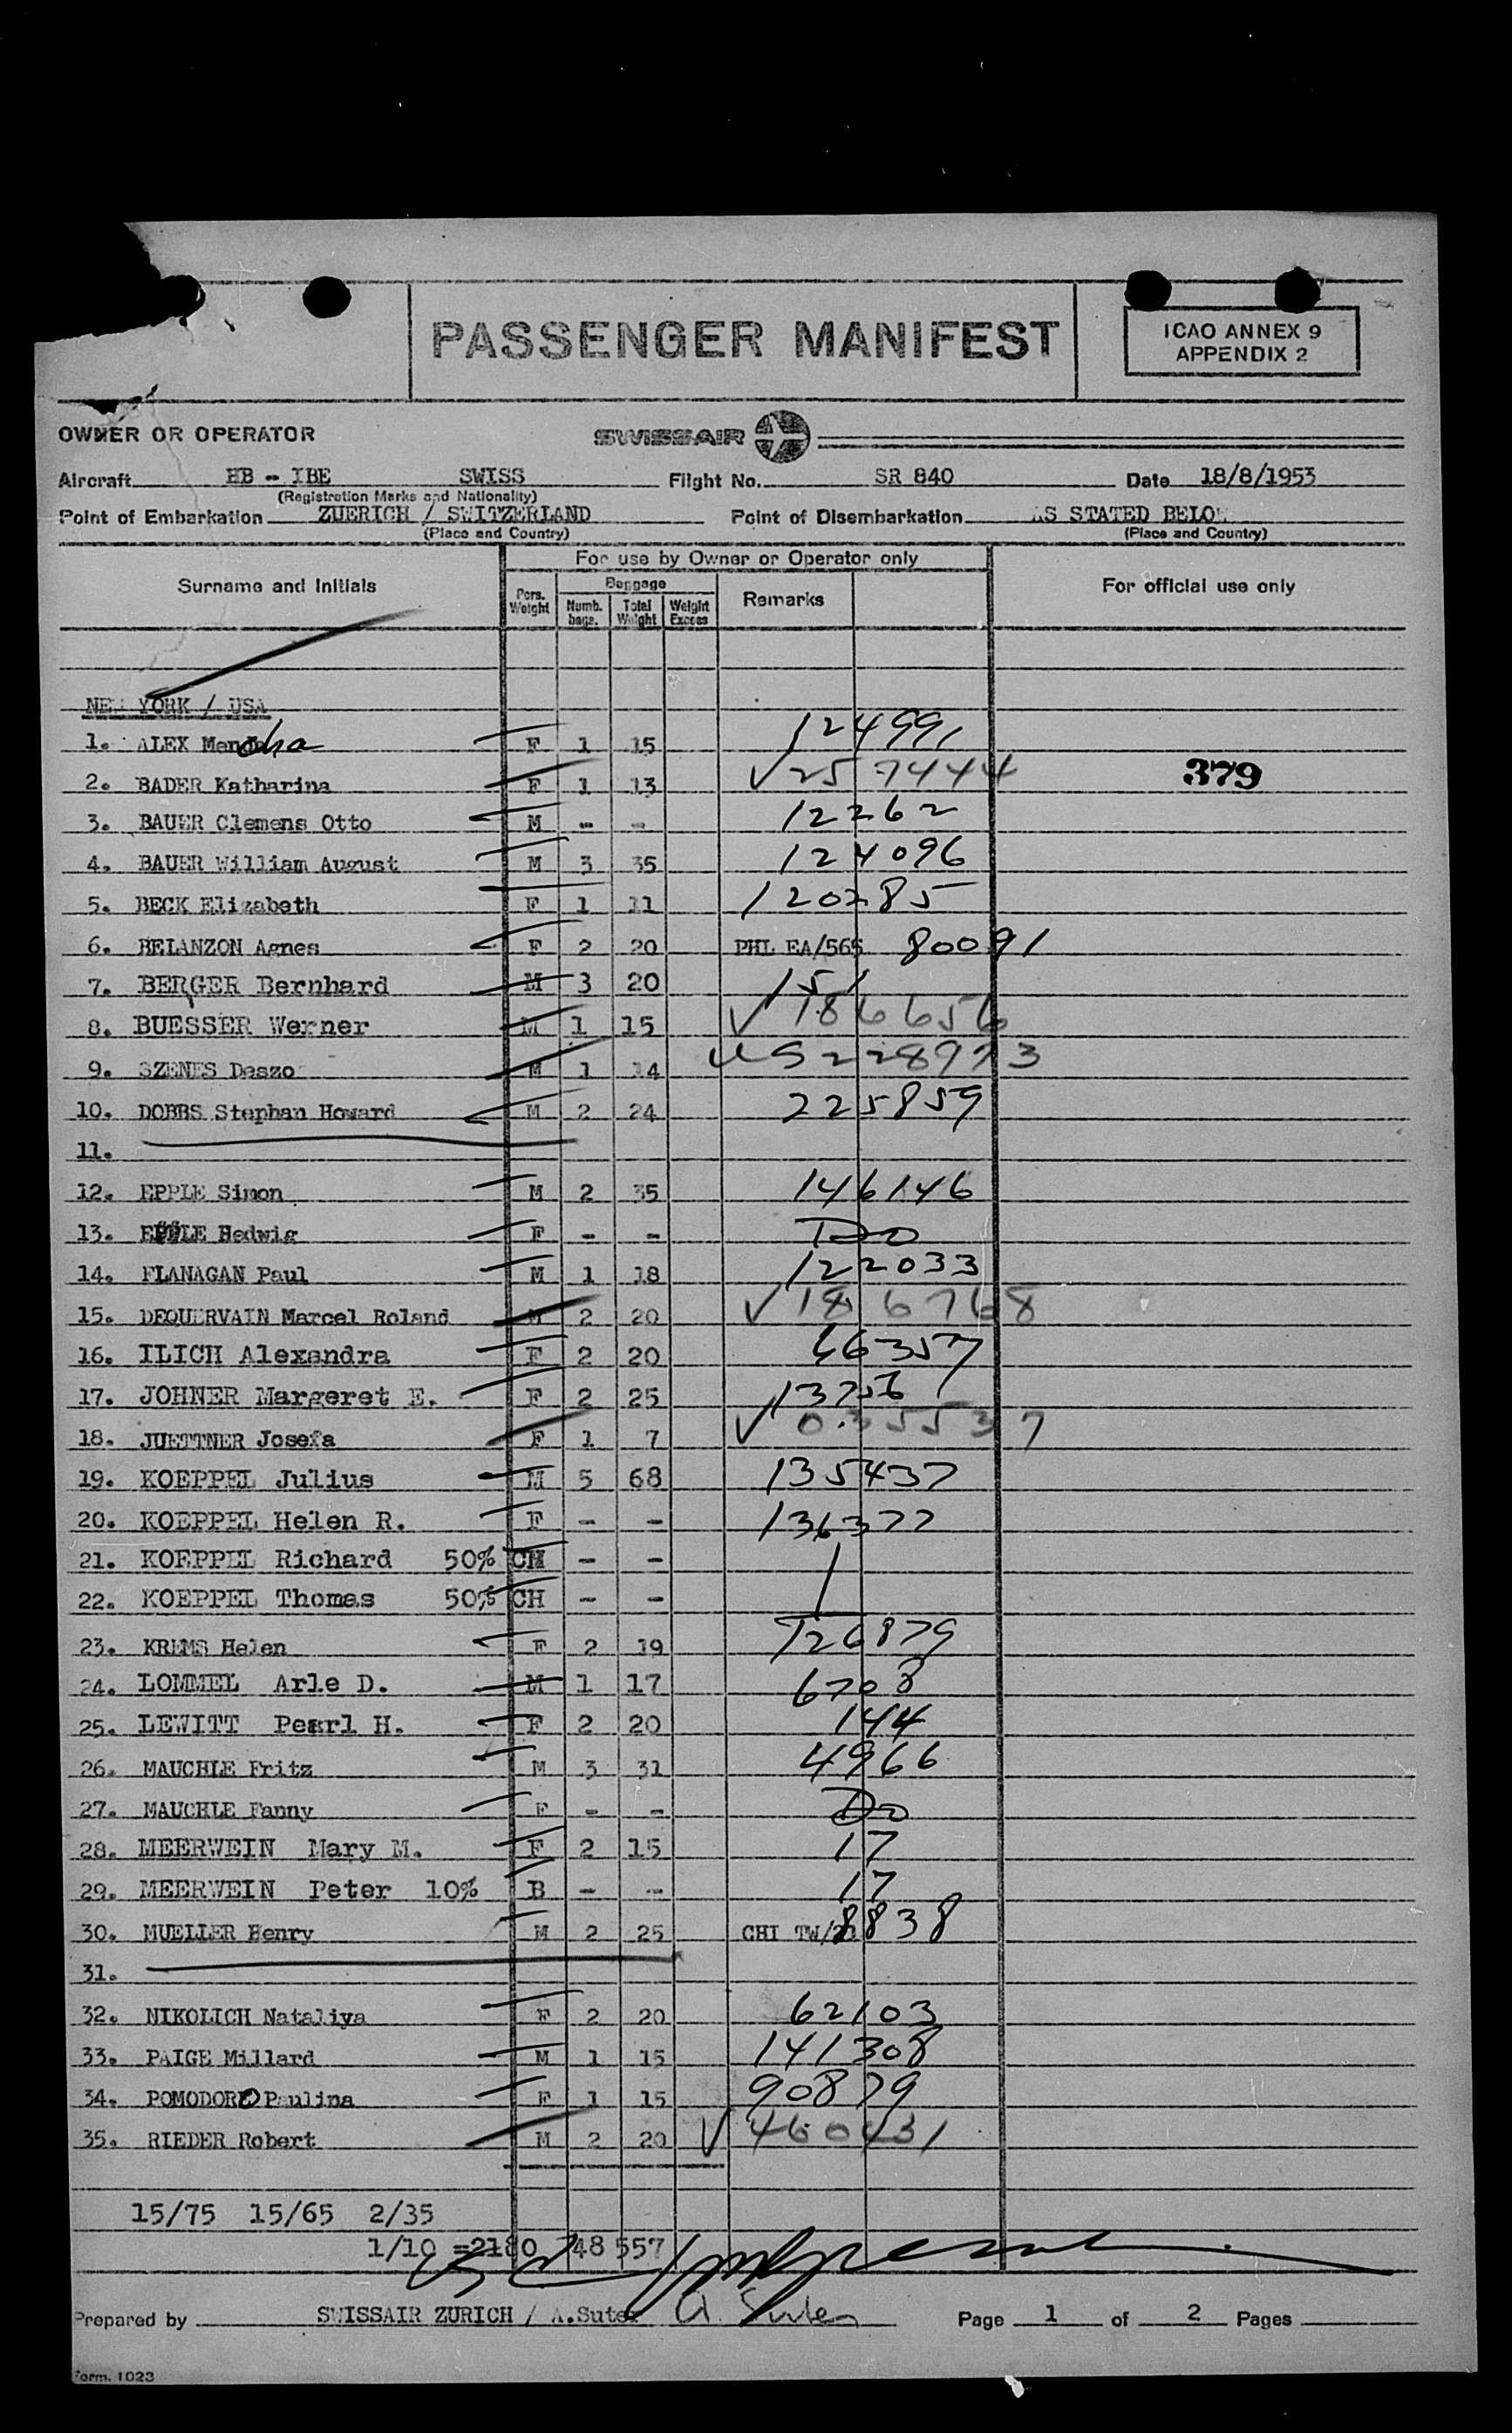 PASSENGER MANIFEST
ICAO ANNEX 9
APPENDIX 2
OWNER OR OPERATOR SWISSAIR
Aircraft HB - IBE SWISS Flight No. SR 840 Date 18/8/1953
(Registration Marks and Nationality)
Point of Embarkation ZUERICH / SWITZERLAND Point of Disembarkation AS STATED BELOW
(Place and Country) (Place and Country)
For use by Owner or Operator only
Surname and Initials Pers. Weight Baggage Numb. bags. Total Weight Weight Excess Remarks For official use only
NEW YORK / USA
1. ALEX F 1 15 124991
2. BADER Katharina F 1 13 ✓ 257444 379
3. BAUER Clemens Otto M - - 12262
4. BAUER William August M 3 35 124096
5. BECK Elizabeth F 1 11 120285
6. BELANZON Agnes F 2 20 PHL EA/565 80091
7. BERGER Bernhard M 3 20 151
8. BUESSER Werner M 1 15 ✓ 186656
9. SZENES Deszo M 1 14
10. DOBBS Stephan Howard M 2 24 225859
11.
12. EPPLE Simon M 2 35 146146
13. EPPLE Hedwig F - - Do
14. FLANAGAN Paul M 1 18 122033
15. DEQUERVAIN Marcel Roland M 2 20 ✓ 186768
16. ILICH Alexandra F 2 20 66357
17. JOHNER Margeret E. F 2 25 13756
18. JUETTNER Josefa F 1 7 ✓ 0355537
19. KOEPPEL Julius M 5 68 135437
20. KOEPPEL Helen R. F - - 136377
21. KOEPPEL Richard 50% CH - -
22. KOEPPEL Thomas 50% CH - -
23. KREMS Helen F 2 19 126879
24. LOMMEL Arle D. M 1 17 6708
25. LEWITT Pearl H. F 2 20 144
26. MAUCHLE Fritz M 3 31 4966
27. MAUCHLE Fanny F - - Do
28. MEERWEIN Mary M. F 2 15 17
29. MEERWEIN Peter 10% B - - 17
30. MUELLER Henry M 2 25 CHI 8838
31.
32. NIKOLICH Nataliya F 2 20 62103
33. PAIGE Millard M 1 15 141308
34. POMODORO Paulina F 1 15 90879
35. RIEDER Robert M 2 20 ✓ 460431
15/75 15/65 2/35
1/10 =2180 48 557
Prepared by SWISSAIR ZURICH / A.Suter A. Suter Page 1 of 2 Pages
Form. 1023